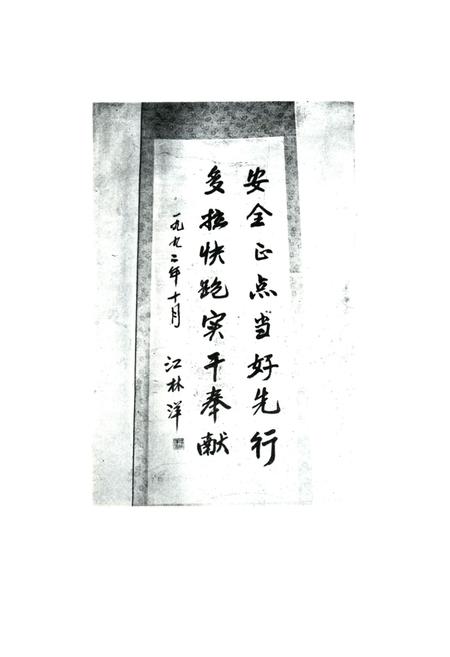 安全正点当好先行
多拉快跑实干奉献
一九九二年十月
江林洋